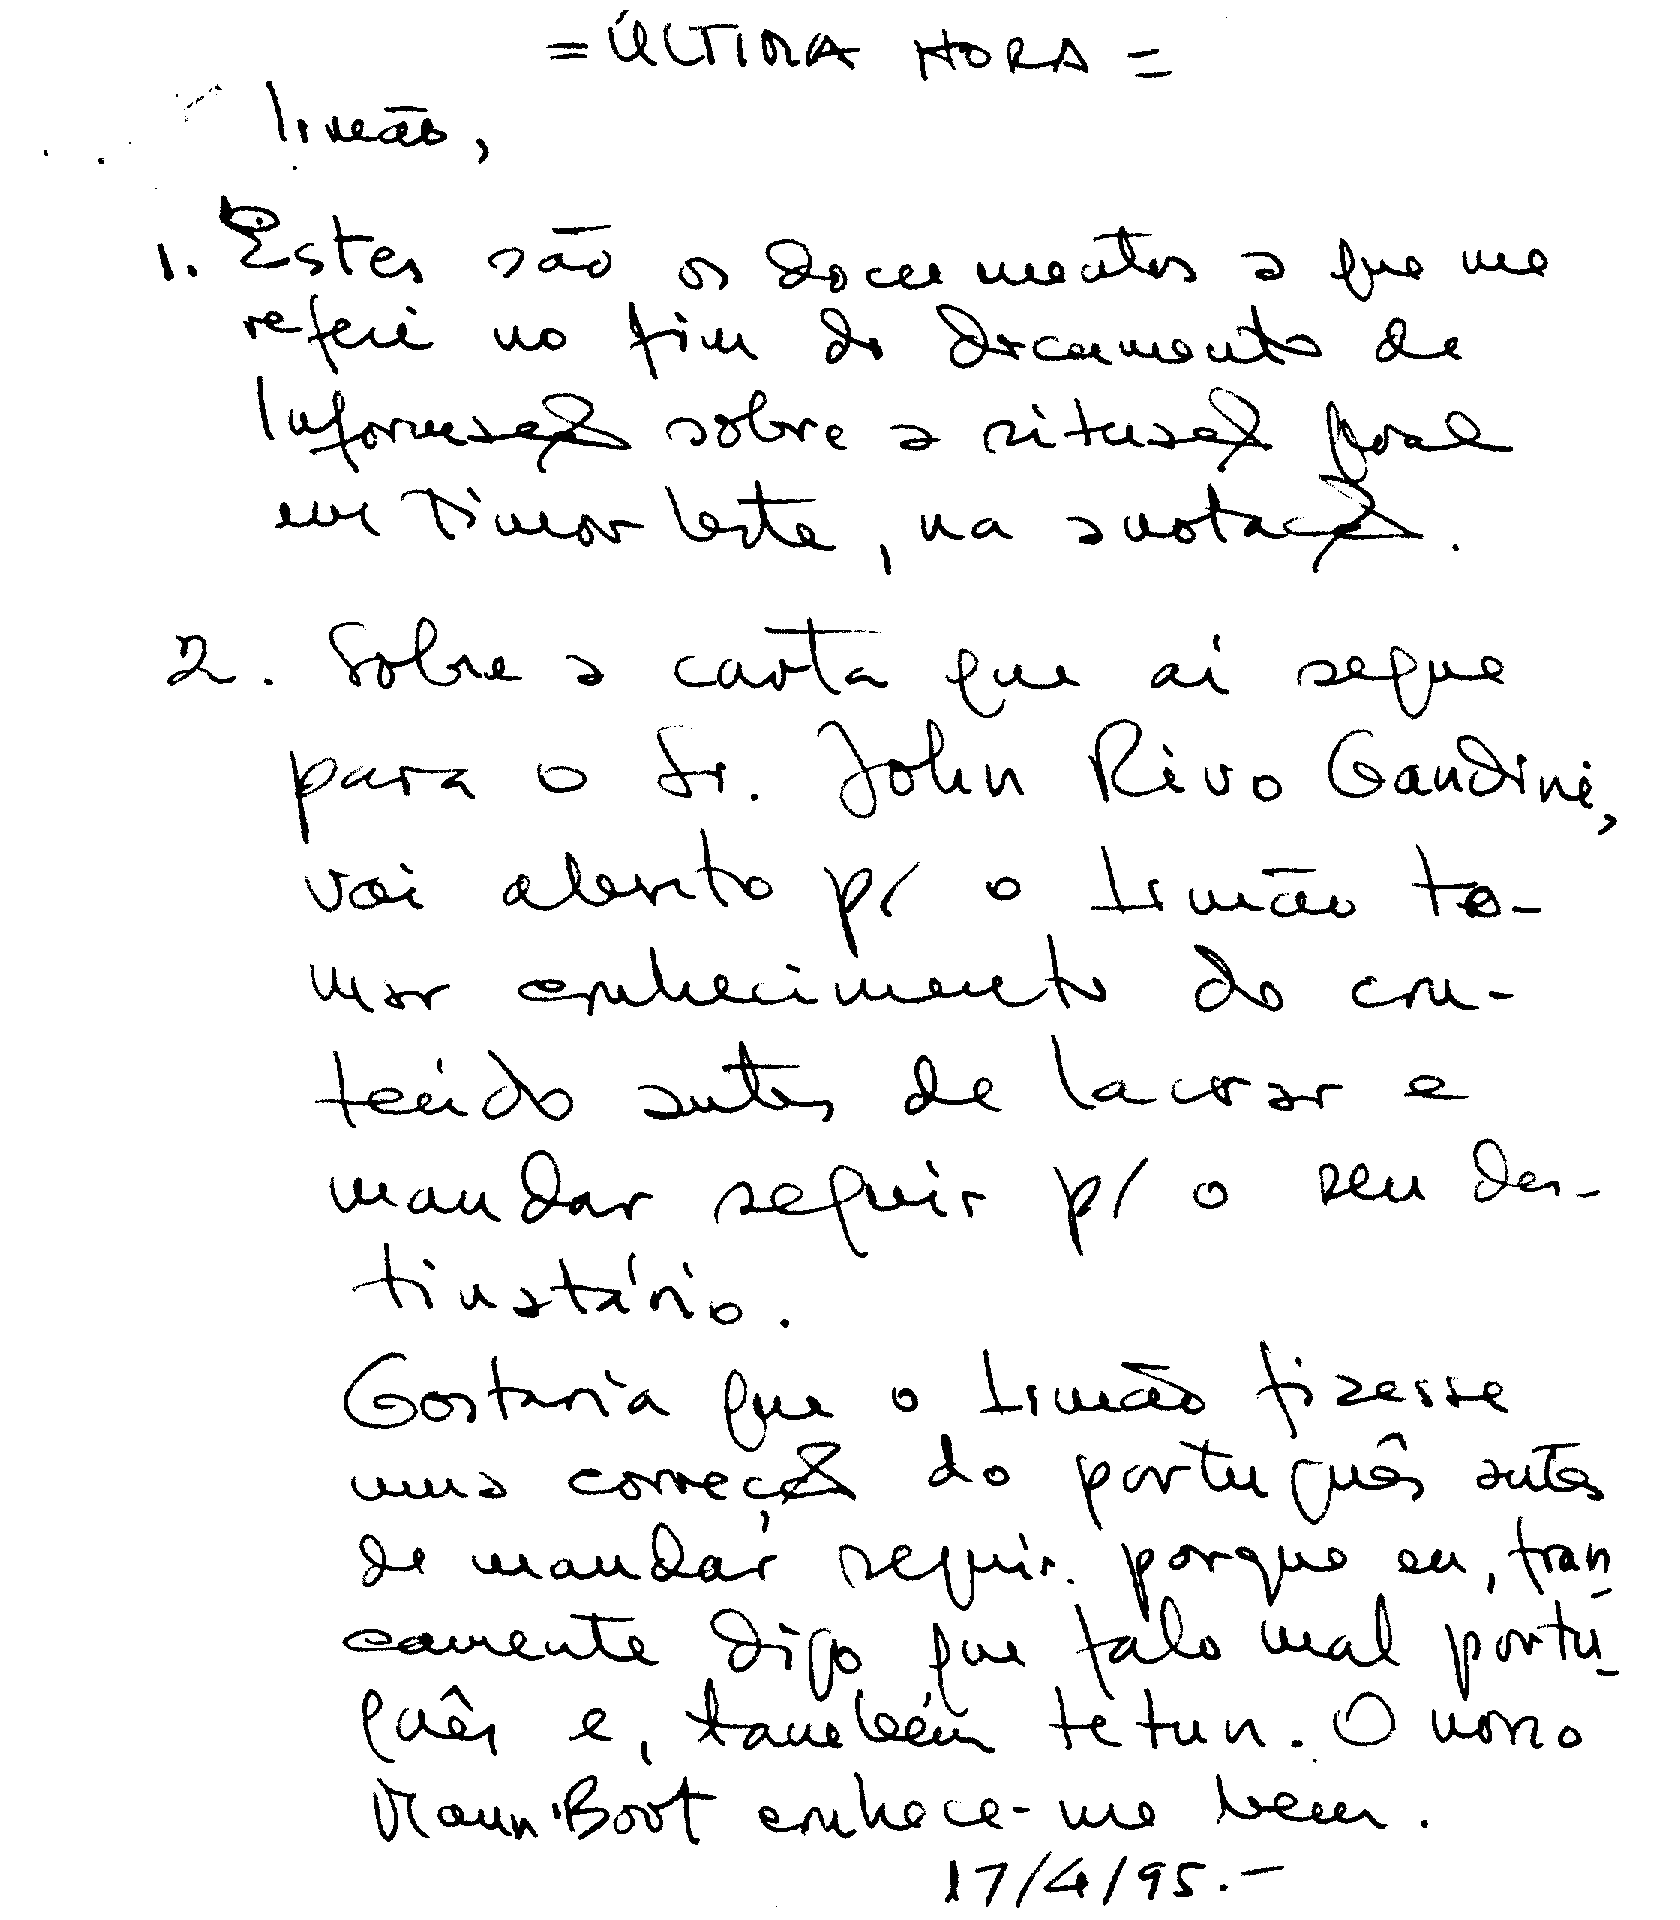 = ÚLTIMA HORA =
Irmão,
1. Estes são os documentos a que me
referi no fim do documento de
Informação sobre a situação geral
em Timor Leste, na anotação.
2. Sobre a carta que aí segue
para o Sr. John Rivo Gandini,
vai aberto p/ o Irmão to-
mar conhecimento do con-
teúdo antes de lacrar e
mandar seguir p/ o seu des-
tinatário.
Gostaria que o Irmão fizesse
uma correção do português antes
de mandar seguir. porque eu, fran
camente digo que falo mal portu-
guês e, também tetun. O nosso
Maun Boot conhece-me bem.
17/4/95.-